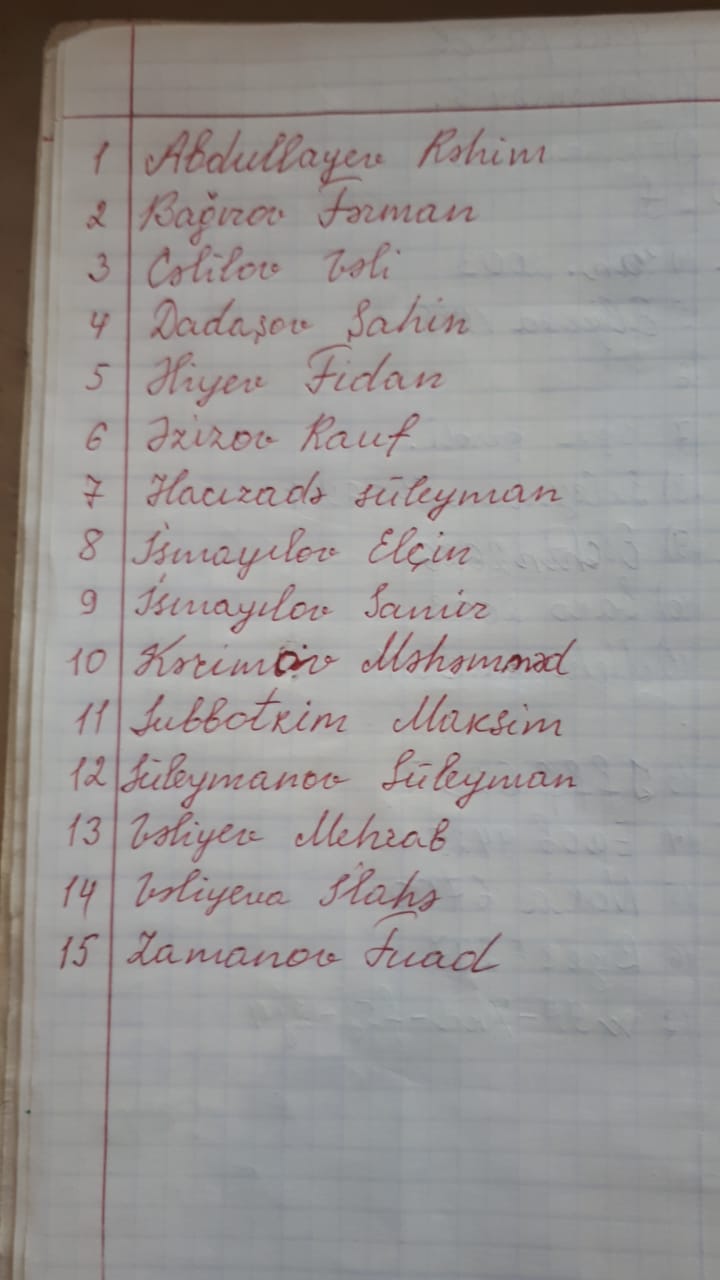 1 Abdullayev Rəhim
2 Bağırov Fərman
3 Cəlilov Vəli
4 Dadaşov Şahin
5 Fidan
6 Əzizov Rauf
7 Hacızadə Süleyman
8 İsmayılov Elçin
9 İsmayılov Samir
10 Kərimov Məhəmməd
11 Maksim
12 Süleymanov Süleyman
13 Vəliyev Mehrab
14 Vəliyeva İlahə
15 Zamanov Fuad